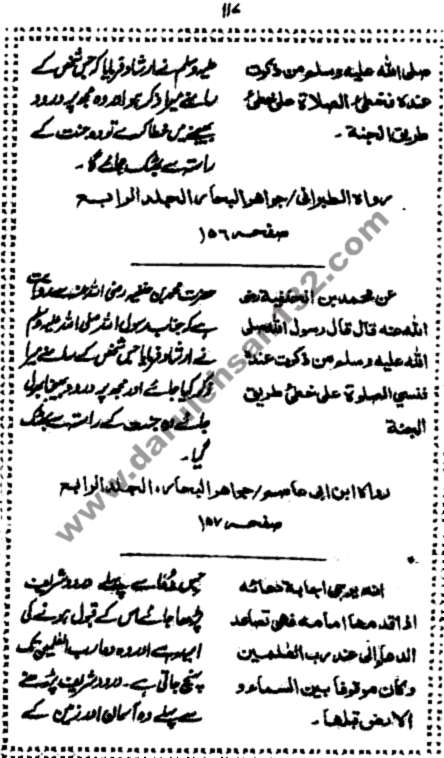 ۱۱۷
صلى الله عليه وسلم من ذكرت
عنده فخطئ الصلاة على خطئ
طريق الجنة -
علیہ وسلم نے ارشاد فرمایا کہ جس شخص کے
سامنے میرا ذکر ہو اور وہ مجھ پر درود
بھیجنے میں خطا کرے تو وہ جنت کے
راستہ سے بھٹک جائے گا۔
رواه الطبرانی/جواهر البحار، الجلد الرابع
صفحہ ۱۵۶
عن محمد بن الحنفية رضی
الله عنه قال قال رسول الله صلى
الله عليه وسلم من ذكرت عنده
فنسي الصلوة على خطئ طريق
الجنة
حضرت محمد بن حنفیہ رضی اللہ عنہ سے روایت
ہے کہ جناب رسول اللہ صلی اللہ علیہ وسلم
نے ارشاد فرمایا جس شخص کے سامنے میرا
ذکر کیا جائے اور مجھ پر درود بھیجنا بھول
جائے وہ جنت کے راستہ سے بھٹک
گیا۔
رواه ابن ابی عاصم/جواهر البحار، الجلد الرابع
صفحہ ۱۵۷
انه يرجى اجابة دعائه
اذا قدمها امامه فهى تصاعد
الدعاء الى عند رب العلمين
وكان موقوفا بين السماء و
الارض قبلها -
جس دعا سے پہلے درود شریف
پڑھا جائے اس کے قبول ہونے کی
امید ہے اور وہ دعا رب العلمین تک
پہنچ جاتی ہے۔ درود شریف پڑھنے
سے پہلے وہ آسمان اور زمین کے
www.darulehsan132.com